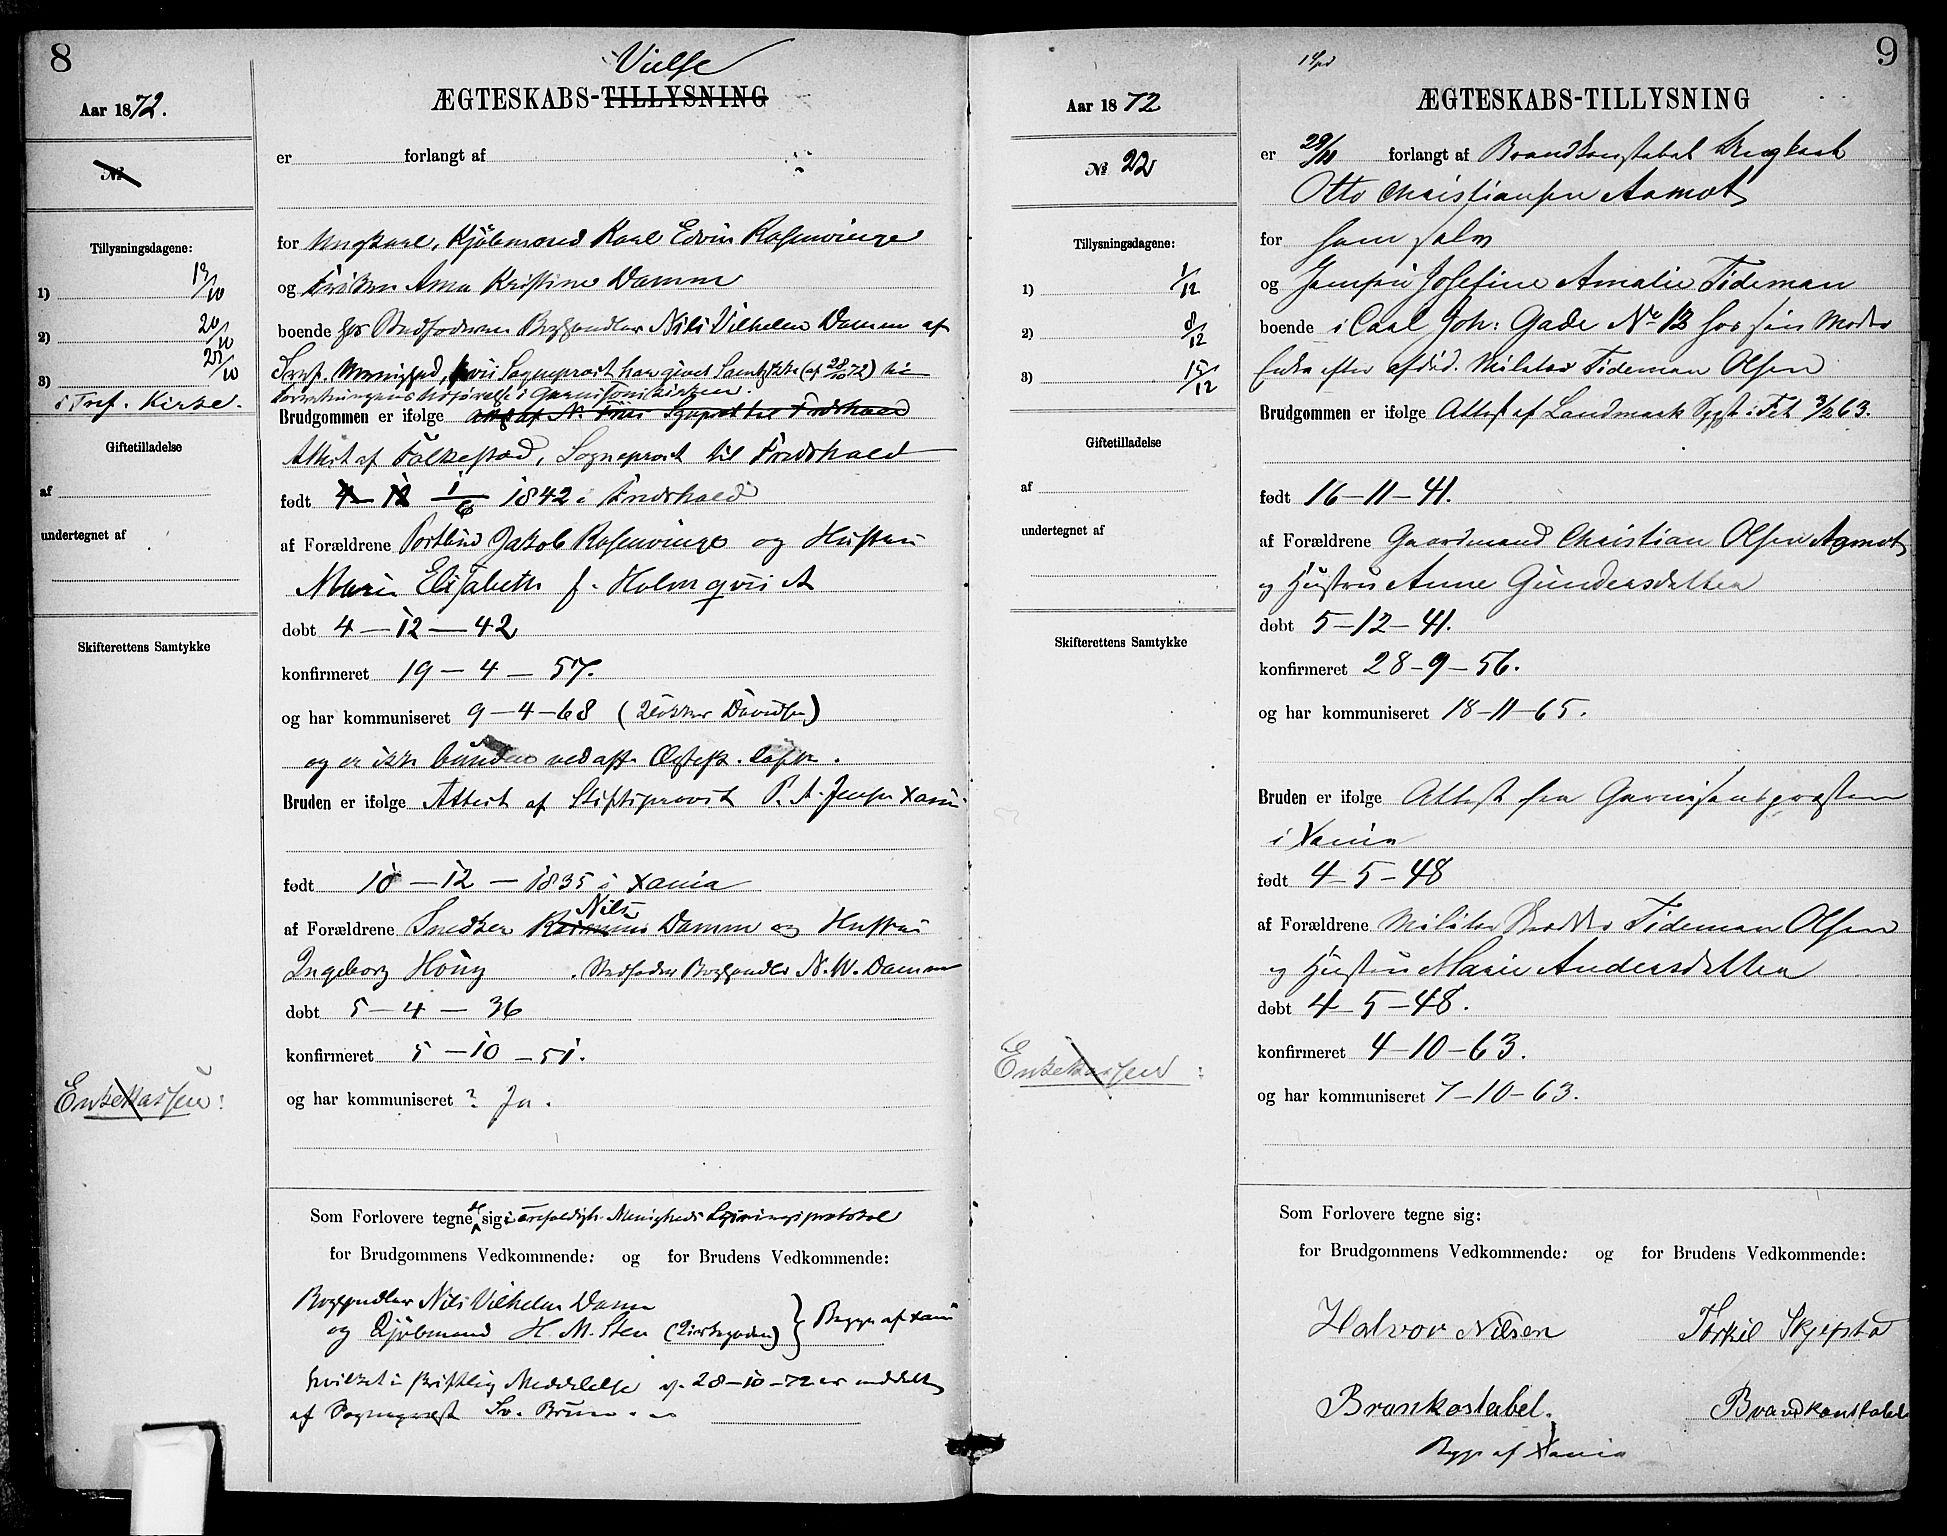 8
Aar 1872.
No
Tillysningsdagene:
1) 13/10
2) 20/10
3) 27/10
i Tref. Kirke.
Giftetilladelse
af
undertegnet af
Skifterettens Samtykke
Enkekassen:
Vielse
ÆGTESKABS-TILLYSNING
er forlangt af
for Ungkarl, Kjøbmand Karl Edvin Rosenvinge
og Frøken Anna Kristine Damm
boende hos Stedfaderen Boghandler Nils Vilhelm Damm af
Tref. Menighed, hvis Sogneprest har givet Samtykke (af 28/10 72) til
Forretningens Udførelse i Garnisonskirken
Brudgommen er ifølge N. Friis Sogneprest til Fredshald
Attest af Falkestad, Sogneprest til Fredshald
født 4 12 1/6 1842 i Fredshald
af Forældrene Postbud Jakob Rosenvinge og Hustru
Marie Elisabeth f. Holmqvist
døbt 4 - 12 - 42
konfirmeret 19 - 4 - 57.
og har kommuniseret 9 - 4 - 68 ( Davidsen)
og er ikke bunden ved Ægtesk.
Bruden er ifølge Attest af Stiftsprovst P. A. Jensen Xania
født 10 - 12 - 1835 i Xania
Nils
af Forældrene Snedker Rasmus Damm og Hustru
Ingeborg Høug . Stedfader Boghandler N. W. Damm
døbt 5 - 4 - 36
konfirmeret 5 - 10 - 51.
og har kommuniseret ? Ja.
Som Forlovere tegnede sig i trefoldigh. Menigheds Lysningsprotokol
for Brudgommens Vedkommende: og for Brudens Vedkommende:
Boghandler Nils Vilhelm Damm
og Kjøbmand H. M. Sten (Kirkegaden) } Begge af Xania
hvilket i skriftlig Meddelelse af 28-10-72 er meddelt
af Sogneprest Sv. Brun.
9
Aar 1872
No 22
Tillysningsdagene:
1) 1/12
2) 8/12
3) 15/12
Giftetilladelse
af
undertegnet af
Skifterettens Samtykke
Enkekassen:
ÆGTESKABS-TILLYSNING
er 29/11 forlangt af Brandkonstabel Ungkarl
Otto Christiansen Aamot
for ham selv
og Jomfru Josefine Amalie Tideman
boende i Carl Joh: Gade No 12 hos sin Moder
Enke efter afdød. Militær Tideman Olsen
Brudgommen er ifølge Attest af Landmark Sgpst i Fet 3/2 63.
født 16-11-41.
af Forældrene Gaardmand Christian Olsen Aamot
og Hustru Anne Gundersdatter
døbt 5-12-41.
konfirmeret 28-9-56.
og har kommuniseret 18-11-65.
Bruden er ifølge Attest fra Garnisonspræsten
i Xania
født 4-5-48
af Forældrene Militær Tideman Olsen
og Hustru Marie Andersdatter
døbt 4-5-48.
konfirmeret 4-10-63.
og har kommuniseret 7-10-63.
Som Forlovere tegne sig:
for Brudgommens Vedkommende: og for Brudens Vedkommende:
Halvor Nilsen Torkil Skjepstad
Brankostabel. Brandkonstabel
Begge af Xania